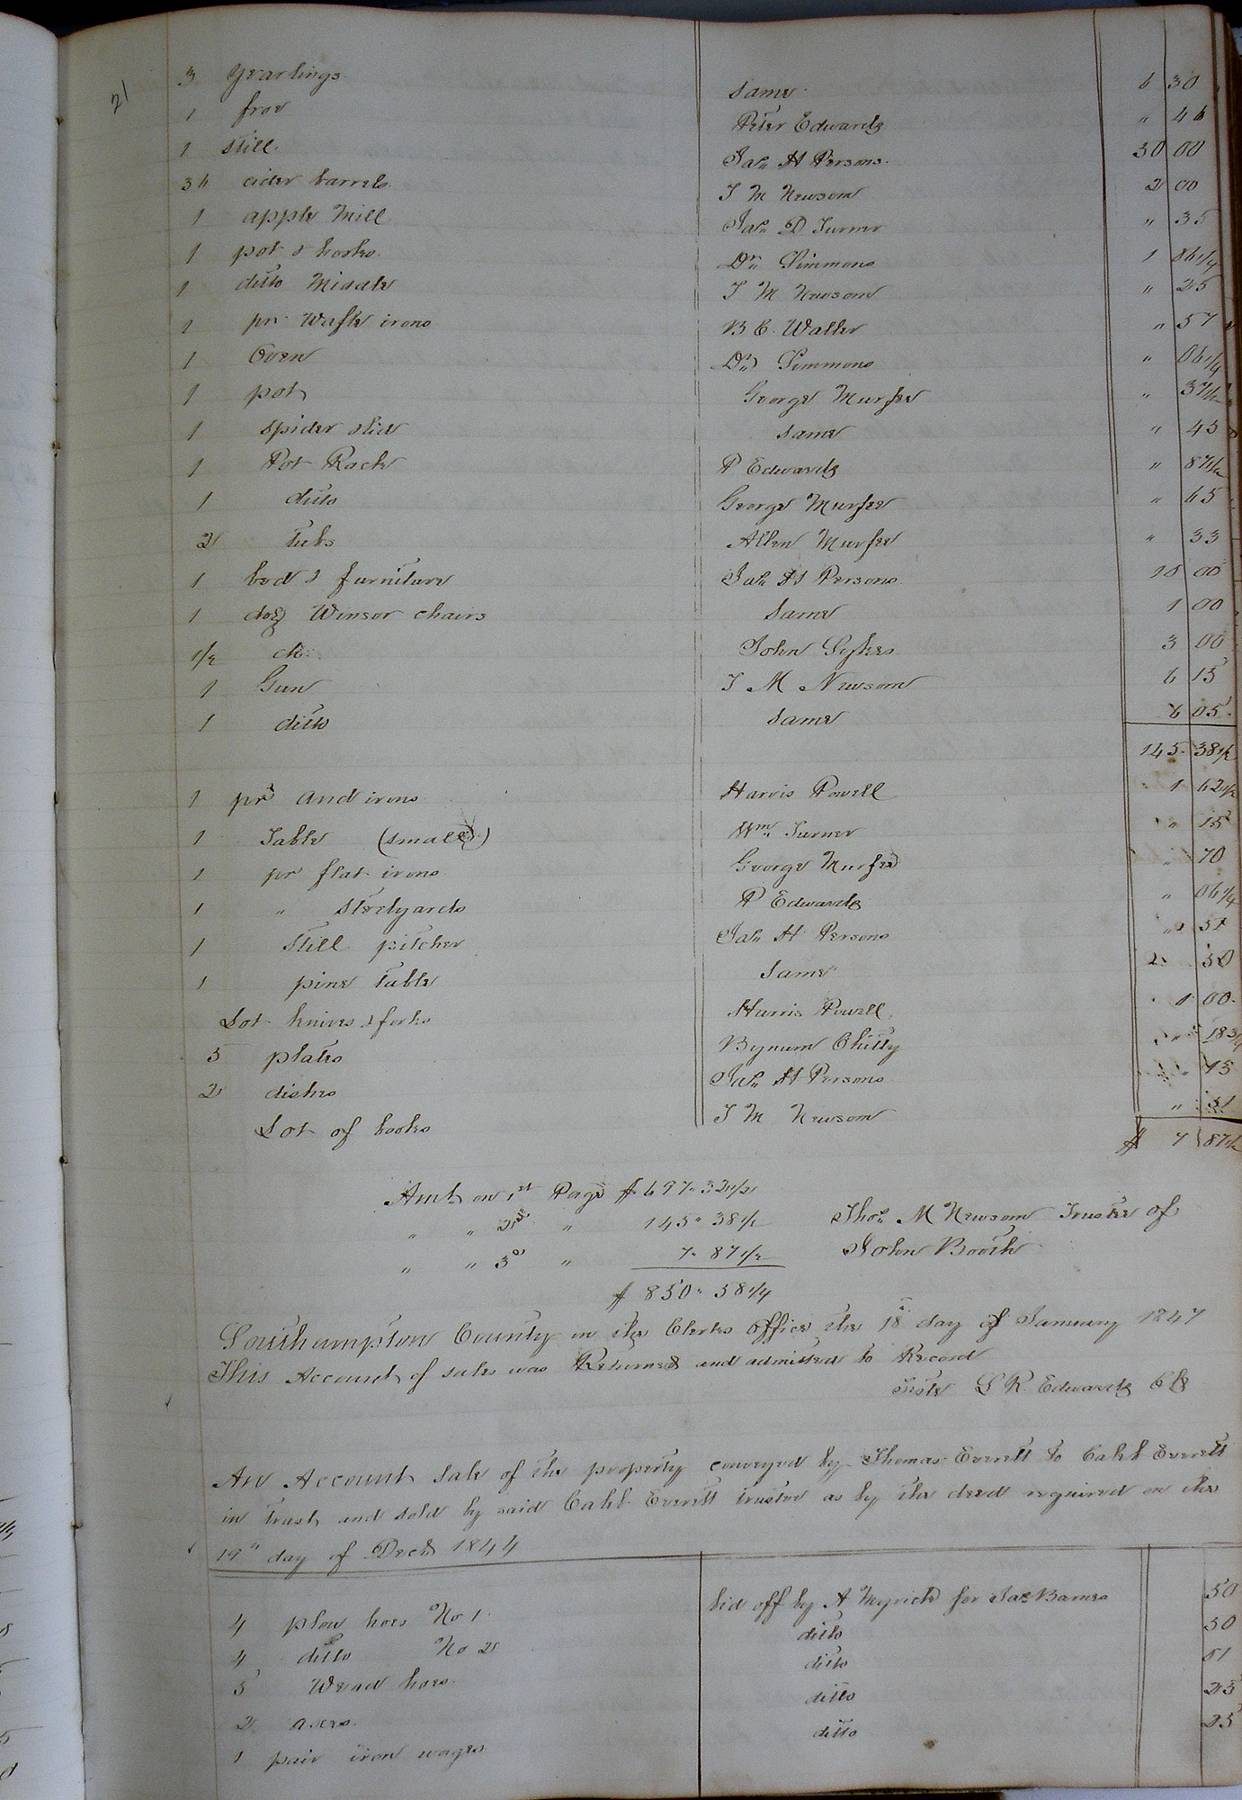 21
3 yearlings same 6 30
1 frow Peter Edwards " 46
1 still Jas. H Persons 30 00
36 cider barrels T M Newsom 2 00
1 apple Mill Jas. D Turner " 35
1 pot & hooks Dr. Simmons 1 86 1/4
1 ditto Middle T M Newsom " 25
1 pr Waffle irons B C. Waller " 57
1 Oven Dr. Simmons " 06 1/4
1 pot George Murfee " 37 1/2
1 Spider & lid same " 45
1 Pot Rack P Edwards " 87 1/2
1 ditto George Murfee " 65
2 tubs Allen Murfee " 33
1 bed & furniture Jas. H Persons 18 00
1 doz Winsor chairs Same 1 00
1/2 do John Sykes 3 00
1 Gun T M Newsom 6 15
1 ditto same 6 05
145 38 1/2
1 pr And irons Harris Powell 1 62 1/2
1 Table (small) Wm Turner " 15
1 pr flat irons George Murfee 70
1 " Steelyards P Edwards " 06 1/4
1 Still pitcher Jas. H Persons
1 pine table Same 2 50
Lot knives & forks Harris Powell 1 00
5 plates Bynum Chitty 18 3/4
2 dishes Jas. H Persons
Lot of books T M Newsom " 51
$ 7 87 1/2
Amt on 1st Page $697.32 1/2
" " 2d " 145.38 1/2 Thos. M Newsom Trustee of
" " 3d " 7.87 1/2 John Booth
$ 850.58 1/4
Southampton County in the Clerks Office the 18 day of January 1847
This Account of sales was Returned and admitted to Record
Teste L R Edwards Clk
An Account Sale of the property conveyed by Thomas Everett to Calib Everett
in trust and sold by said Calib Everett trustee as by the deed required on the
19th day of Decr 1844
4 plow hoes No 1 bid off by A Myrick for Jas Barnes 50
4 ditto No 2 ditto 50
5 Weed hoes ditto 51
2 axes ditto 25
1 pair iron wages ditto 25